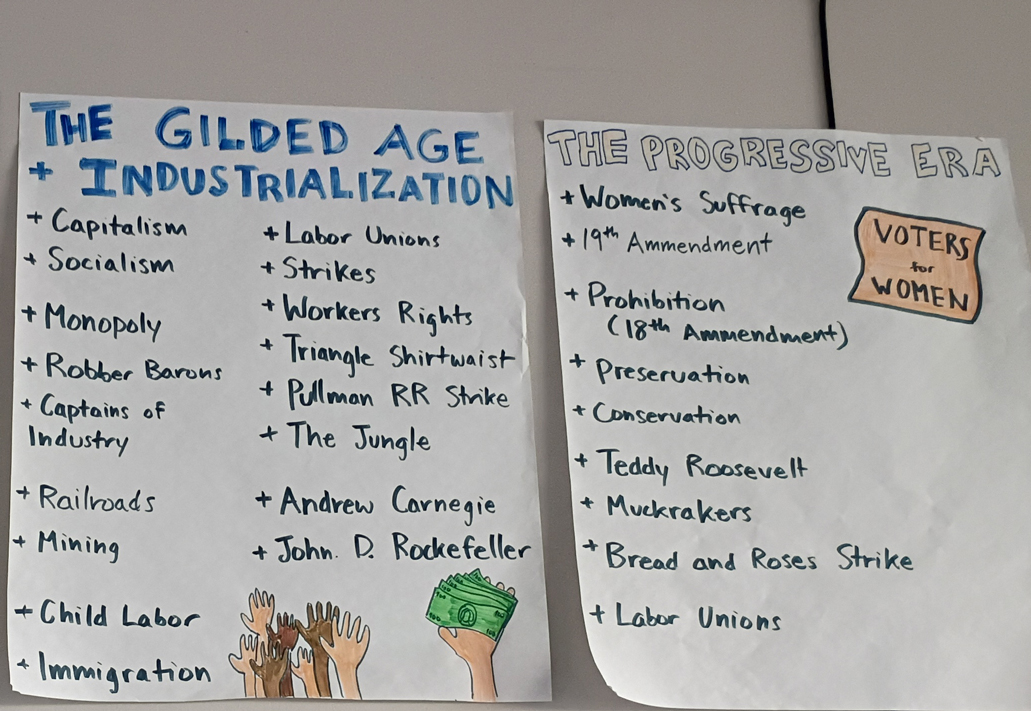 THE GILDED AGE
+ INDUSTRIALIZATION
+ Capitalism
+ Socialism
+ Monopoly
+ Robber Barons
+ Captains of
Industry
+ Railroads
+ Mining
+ Child Labor
+ Immigration
+ Labor Unions
+ Strikes
+ Workers Rights
+ Triangle Shirtwaist
+ Pullman RR Strike
+ The Jungle
+ Andrew Carnegie
+ John. D. Rockefeller
THE PROGRESSIVE ERA
+ Women's Suffrage
+ 19th Ammendment
+ Prohibition
(18th Ammendment)
+ Preservation
+ Conservation
+ Teddy Roosevelt
+ Muckrakers
+ Bread and Roses Strike
+ Labor Unions
VOTERS
for
WOMEN